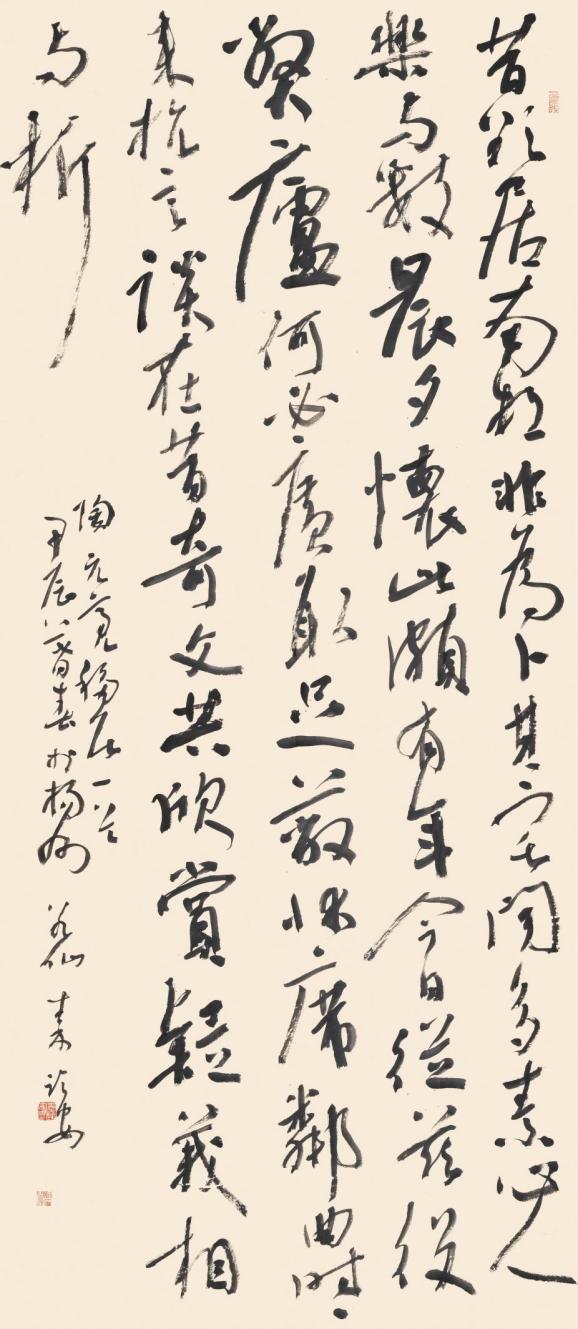 昔欲居南村非為卜其宅聞多素心人
樂与數晨夕懷此頗有年今日從茲役
弊廬何必廣取足蔽床席鄰曲時々
来抗言談在昔奇文共欣賞疑義相
与析
陶元亮移居一首
甲辰暮春於揚州